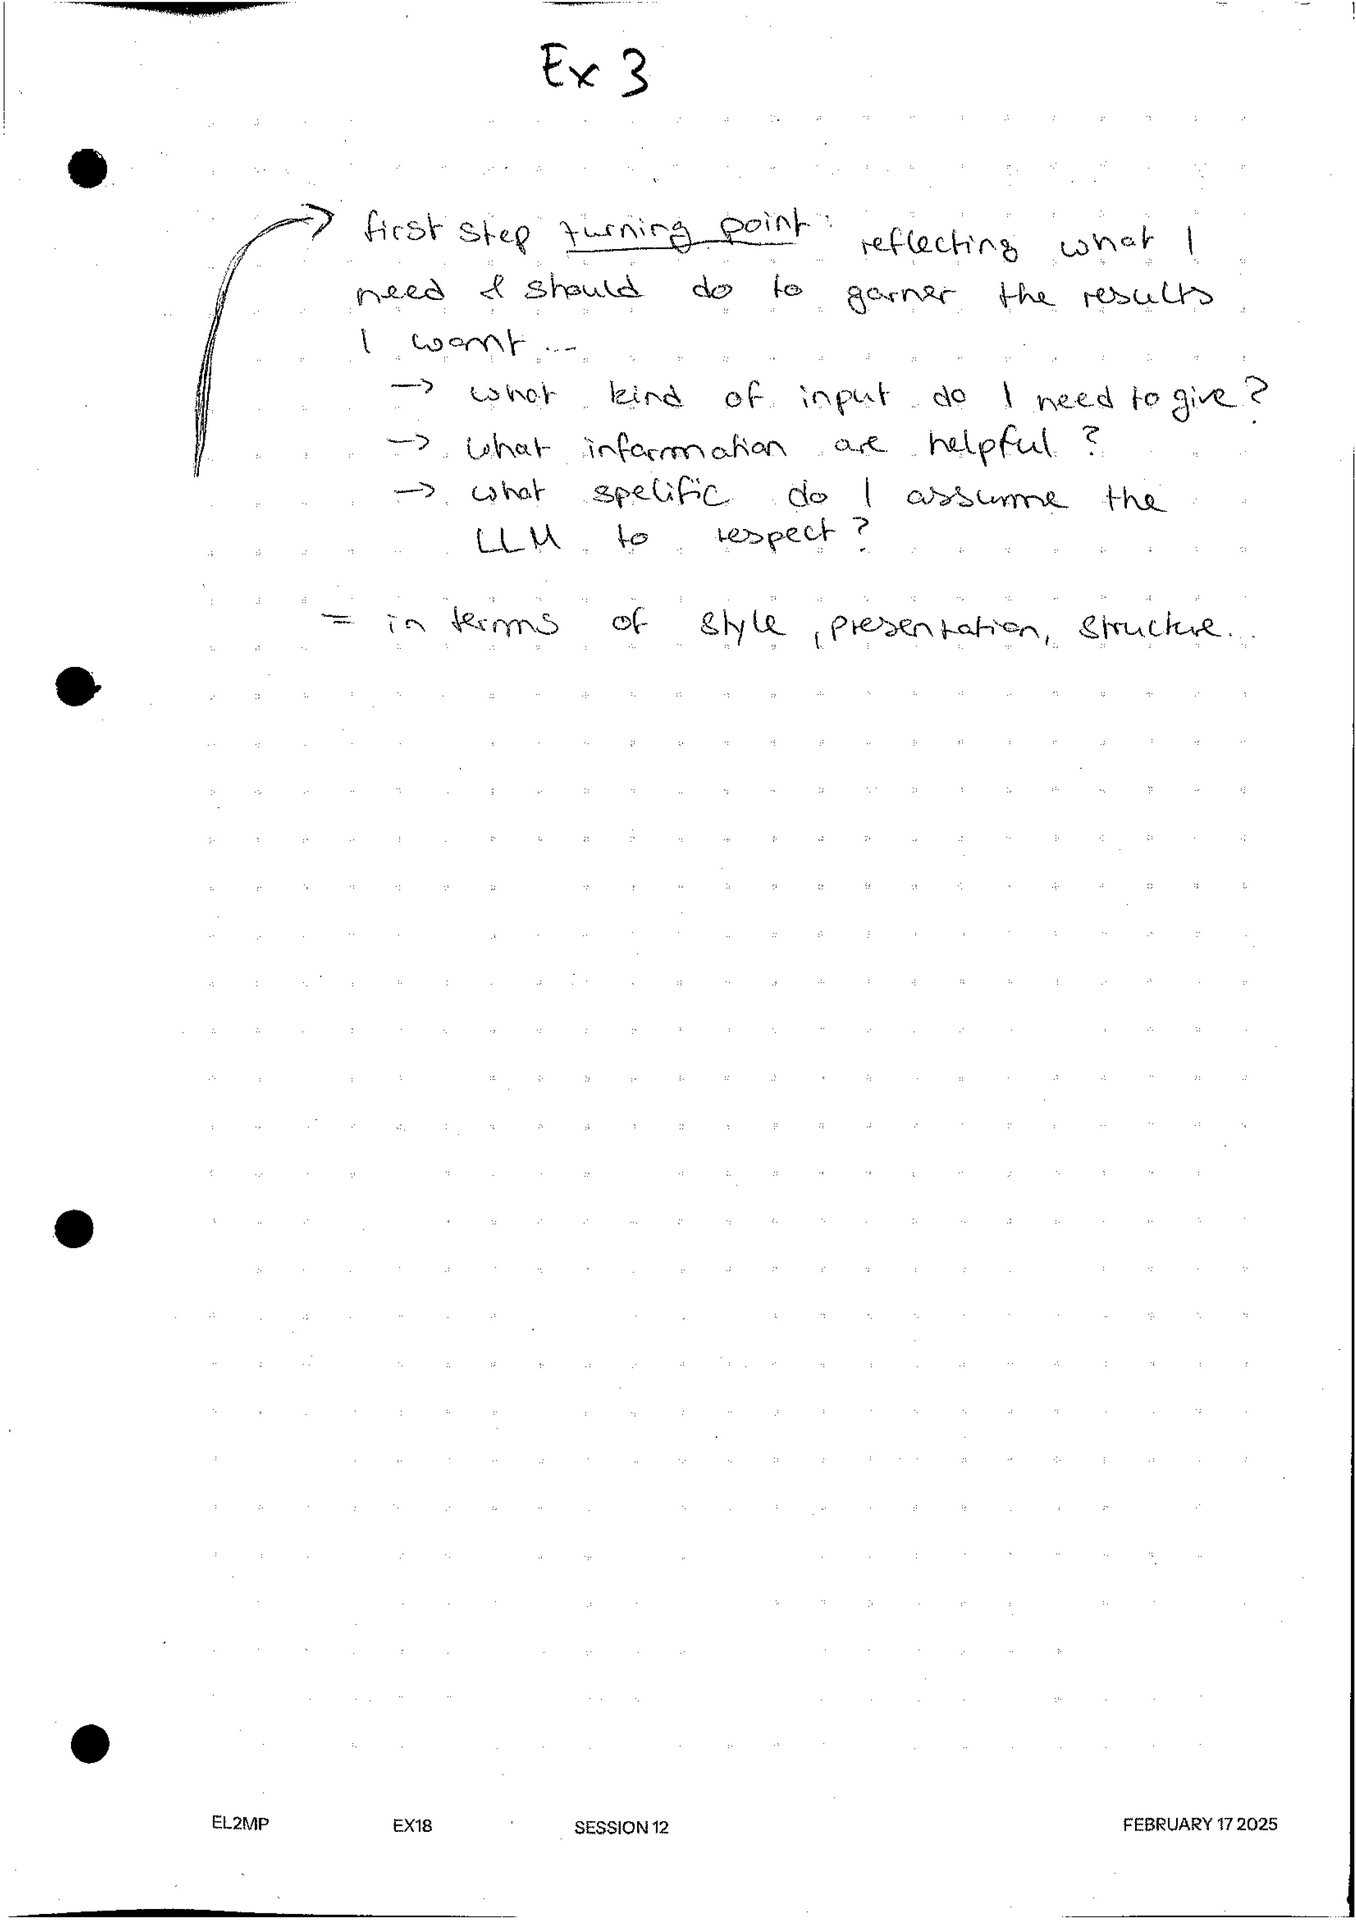 Ex 3
first step turning point: reflecting what I
need & should do to garner the results
I want...
→ what kind of input do I need to give?
→ what information are helpful?
→ what spelific do I assume the
LLM to respect?
= in terms of style, presentation, structure...
EL2MP EX18 SESSION 12 FEBRUARY 17 2025